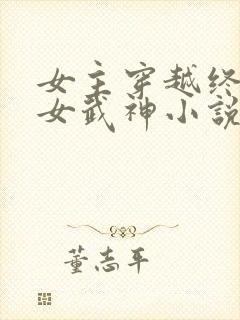 女主穿越终
女武神小说
董志平